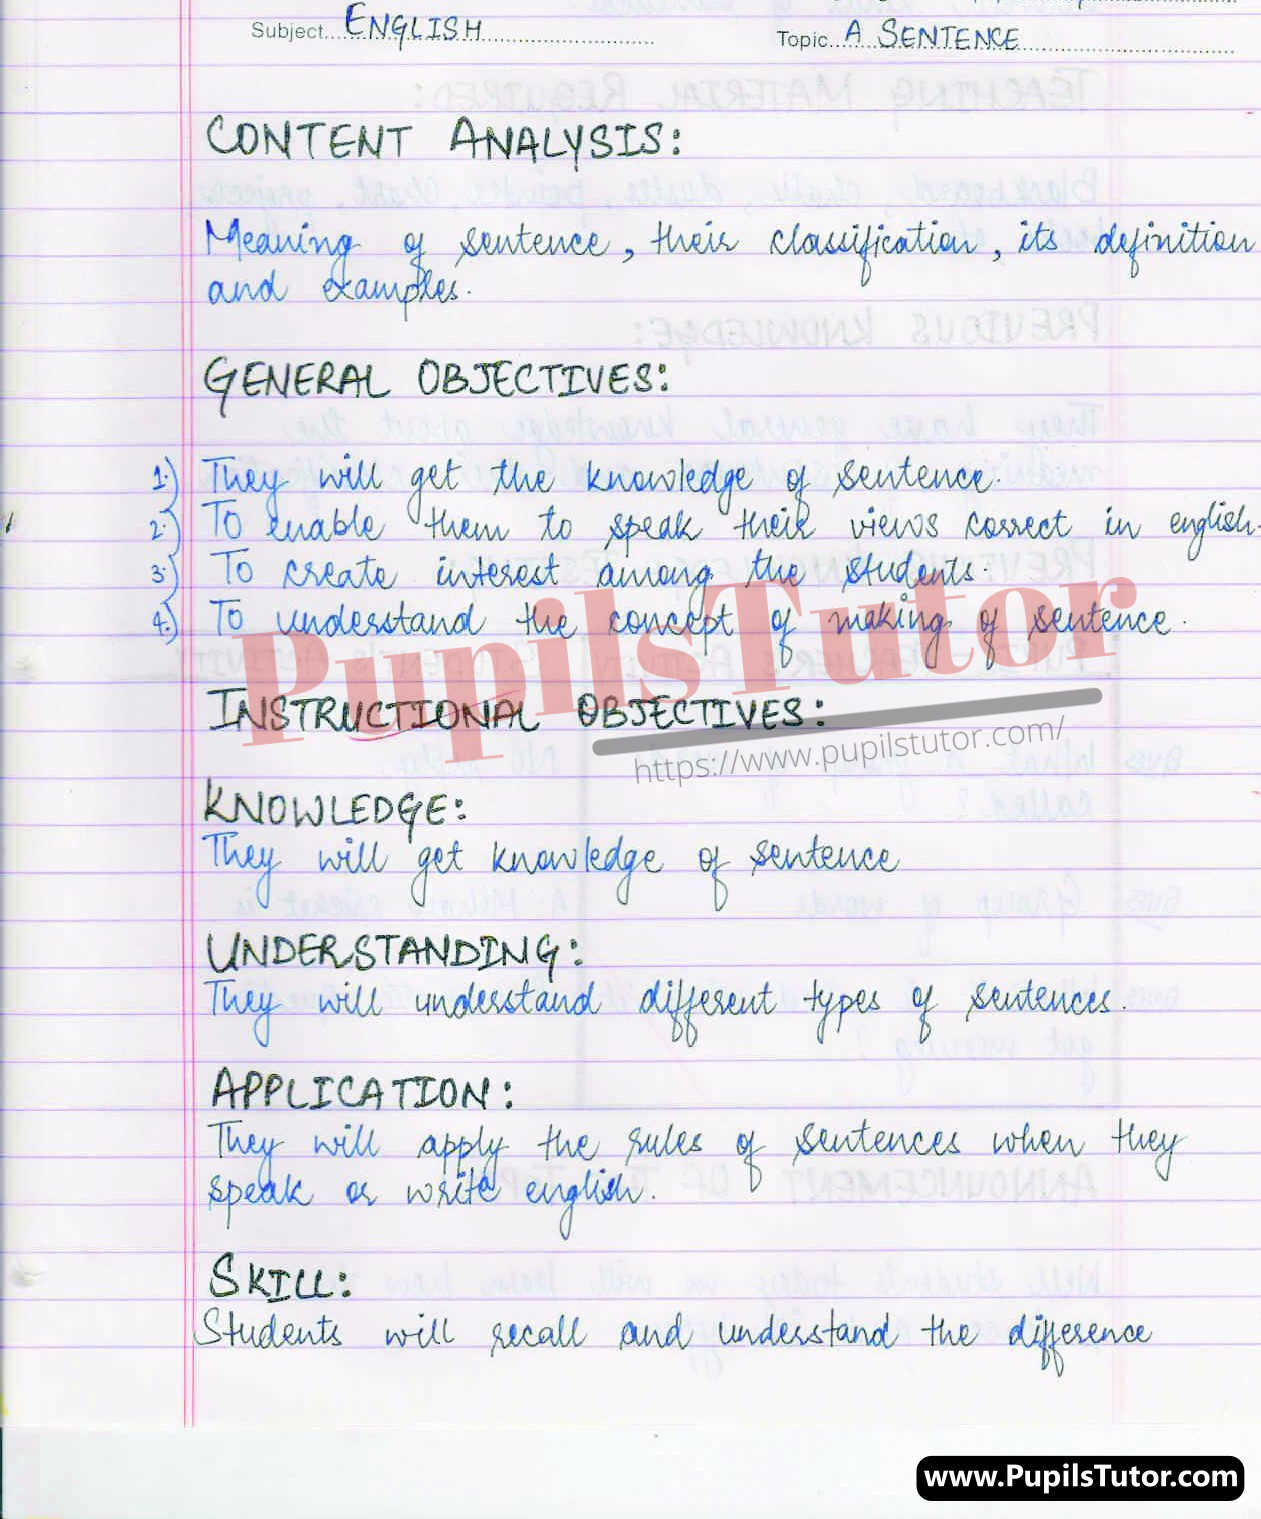 Subject....ENGLISH
Topic...A SENTENCE
CONTENT ANALYSIS:
Meaning of sentence, their classification, its definition
and examples.
GENERAL OBJECTIVES:
1.) They will get the knowledge of sentence.
2.) To enable them to speak their views correct in english.
3.) To create interest among the students.
4.) To understand the concept of making of sentence.
PupilsTutor
INSTRUCTIONAL OBJECTIVES:
https://www.pupilstutor.com/
KNOWLEDGE:
They will get knowledge of sentence
UNDERSTANDING:
They will understand different types of sentences.
APPLICATION:
They will apply the rules of sentences when they
speak or write english.
SKILL:
Students will recall and understand the difference
www.PupilsTutor.com